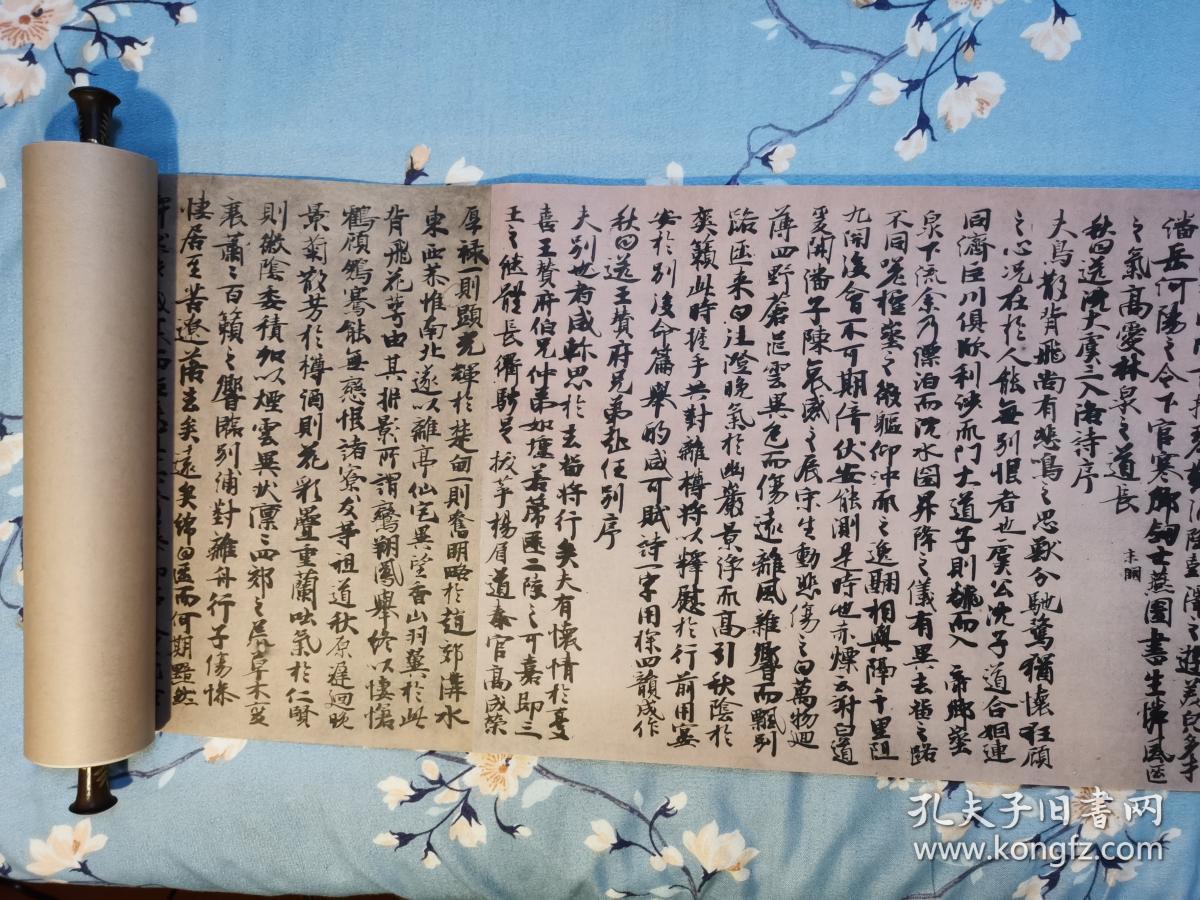 潘岳河陽之令下官寒鄉劍士燕國書生憐風
之氣高愛林泉之道長
秋日送沈大虞三入洛詩序
夫鳥散背飛尚有悲鳴之思獸分馳騖猶懷狂顧
之心況在於人能無別恨者也虞公沈子道合姻連
同濟巨川俱欣利涉天門大道子則翻而入帝鄉
泉下流余乃漂泊而沈水國昇降之儀有異去留之路
不同嗟控地之微軀仰沖天之逸翮相與隔千里阻
九關後會不可期停伏安能測是時也赤熛云謝白道
爰開潘子陳哀感之辰宋生動悲傷之日萬物迴
薄四野蒼茫雲異色而傷遠離風雜響而飄別
路匝來日注澄晚氣於幽巖景浮而高引秋陰於
爽籟此時握手共對離樽將以釋慰於行前用宴
安於別後命篇舉酌咸可賦詩一字用探四韻成作
秋日送王贊府兄弟赴任別序
夫別也者咸軫思於去留將行矣夫有懷情於憂
喜王贊府伯兄仲弟如壎若篪匪二陸之可嘉即三
王之繼體長衢騁足拔茅楊眉道泰官高成榮
厚祿一則顯光輝於楚甸一則奮明略於趙郊溝水
東西恭惟南北遂以離亭仙宅異望香山羽翼於此
背飛花萼由其拼影所謂鸞翔鳳舉終以悽愴
鶴顧鴻騫能無戀恨諸寮友等祖道秋原遲迴晚
景菊散芳於樽酒則花彩疊重蘭吐氣於仁賢
則徽陰委積加以煙雲異狀凜〻四郊之荒
襄蕭〻百籟之響臨別浦對離舟行子傷慘
悽居至苦遼落去矣遠矣綿日匿而何期黯然
孔夫子旧書网
www.kongfz.com